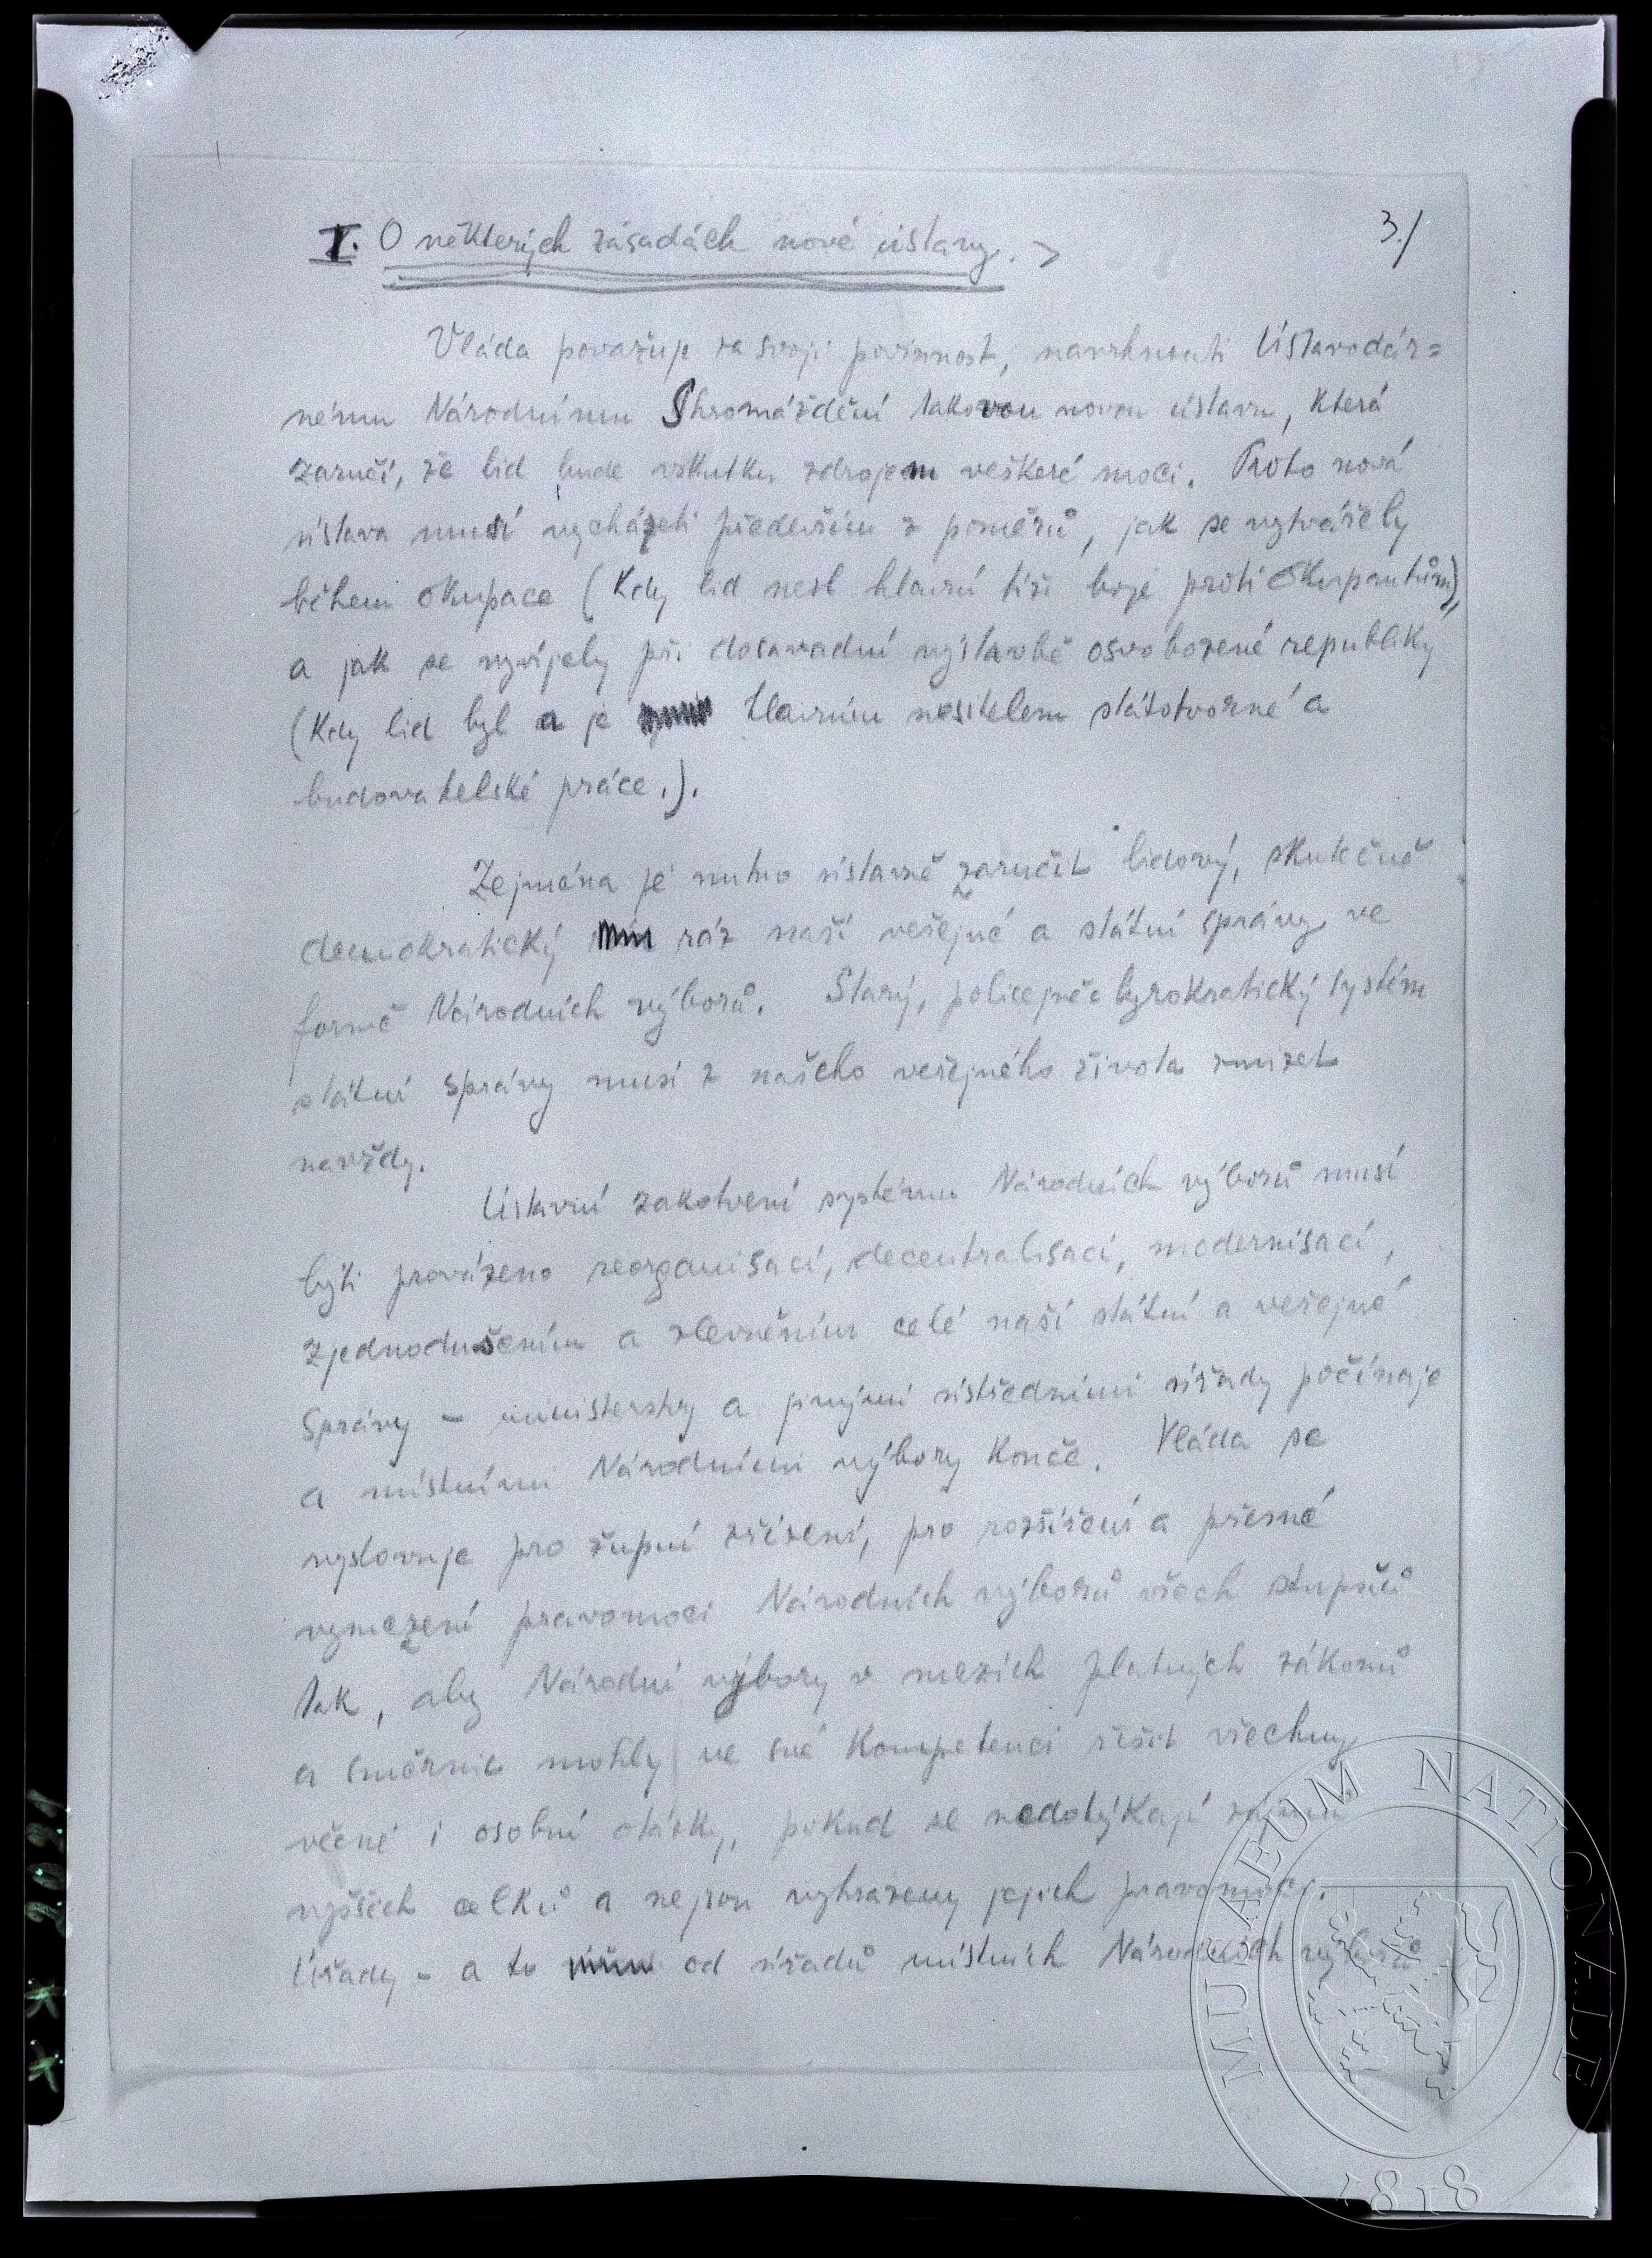 3./
I. O některých zásadách nové ústavy. >
Vláda považuje za svoji povinnost, navrhnouti Ústavodár=
nému Národnímu Shromáždění takovou novou ústavu, která
zaručí, že lid bude vskutku zdrojem veškeré moci. Proto nová
ústava musí vycházeti především z poměrů, jak se vytvářely
během okupace (kdy lid nesl hlavní tíži boje proti okupantům),
a jak se vyvíjely při dosavadní výstavbě osvobozené republiky
(kdy lid byl a je hlavním nositelem státotvorné a
budovatelské práce.).
Zejména je nutno ústavně zaručit lidový, skutečně
demokratický ráz naší veřejné a státní správy ve
formě Národních výborů. Starý, policejně byrokratický systém
státní správy musí z našeho veřejného života zmizet
navždy.
Ústavní zakotvení systému Národních výborů musí
býti provázeno reorganisací, decentralisací, modernisací,
zjednodušením a zlevněním celé naší státní a veřejné
správy – ministerstvy a jinými ústředními úřady počínaje
a místními Národními výbory konče. Vláda se
vyslovuje pro župní zřízení, pro rozšíření a přesné
vymezení pravomoci Národních výborů všech stupňů
tak, aby Národní výbory v mezích platných zákonů
a směrnic mohly ve své kompetenci řešit všechny
věcné i osobní otázky, pokud se nedotýkají zájmů
vyšších celků a nejsou vyhrazeny jejich pravomoci.
Úřady – a to od úřadů místních Národních výborů
MUSAEUM NATIONALE
1818